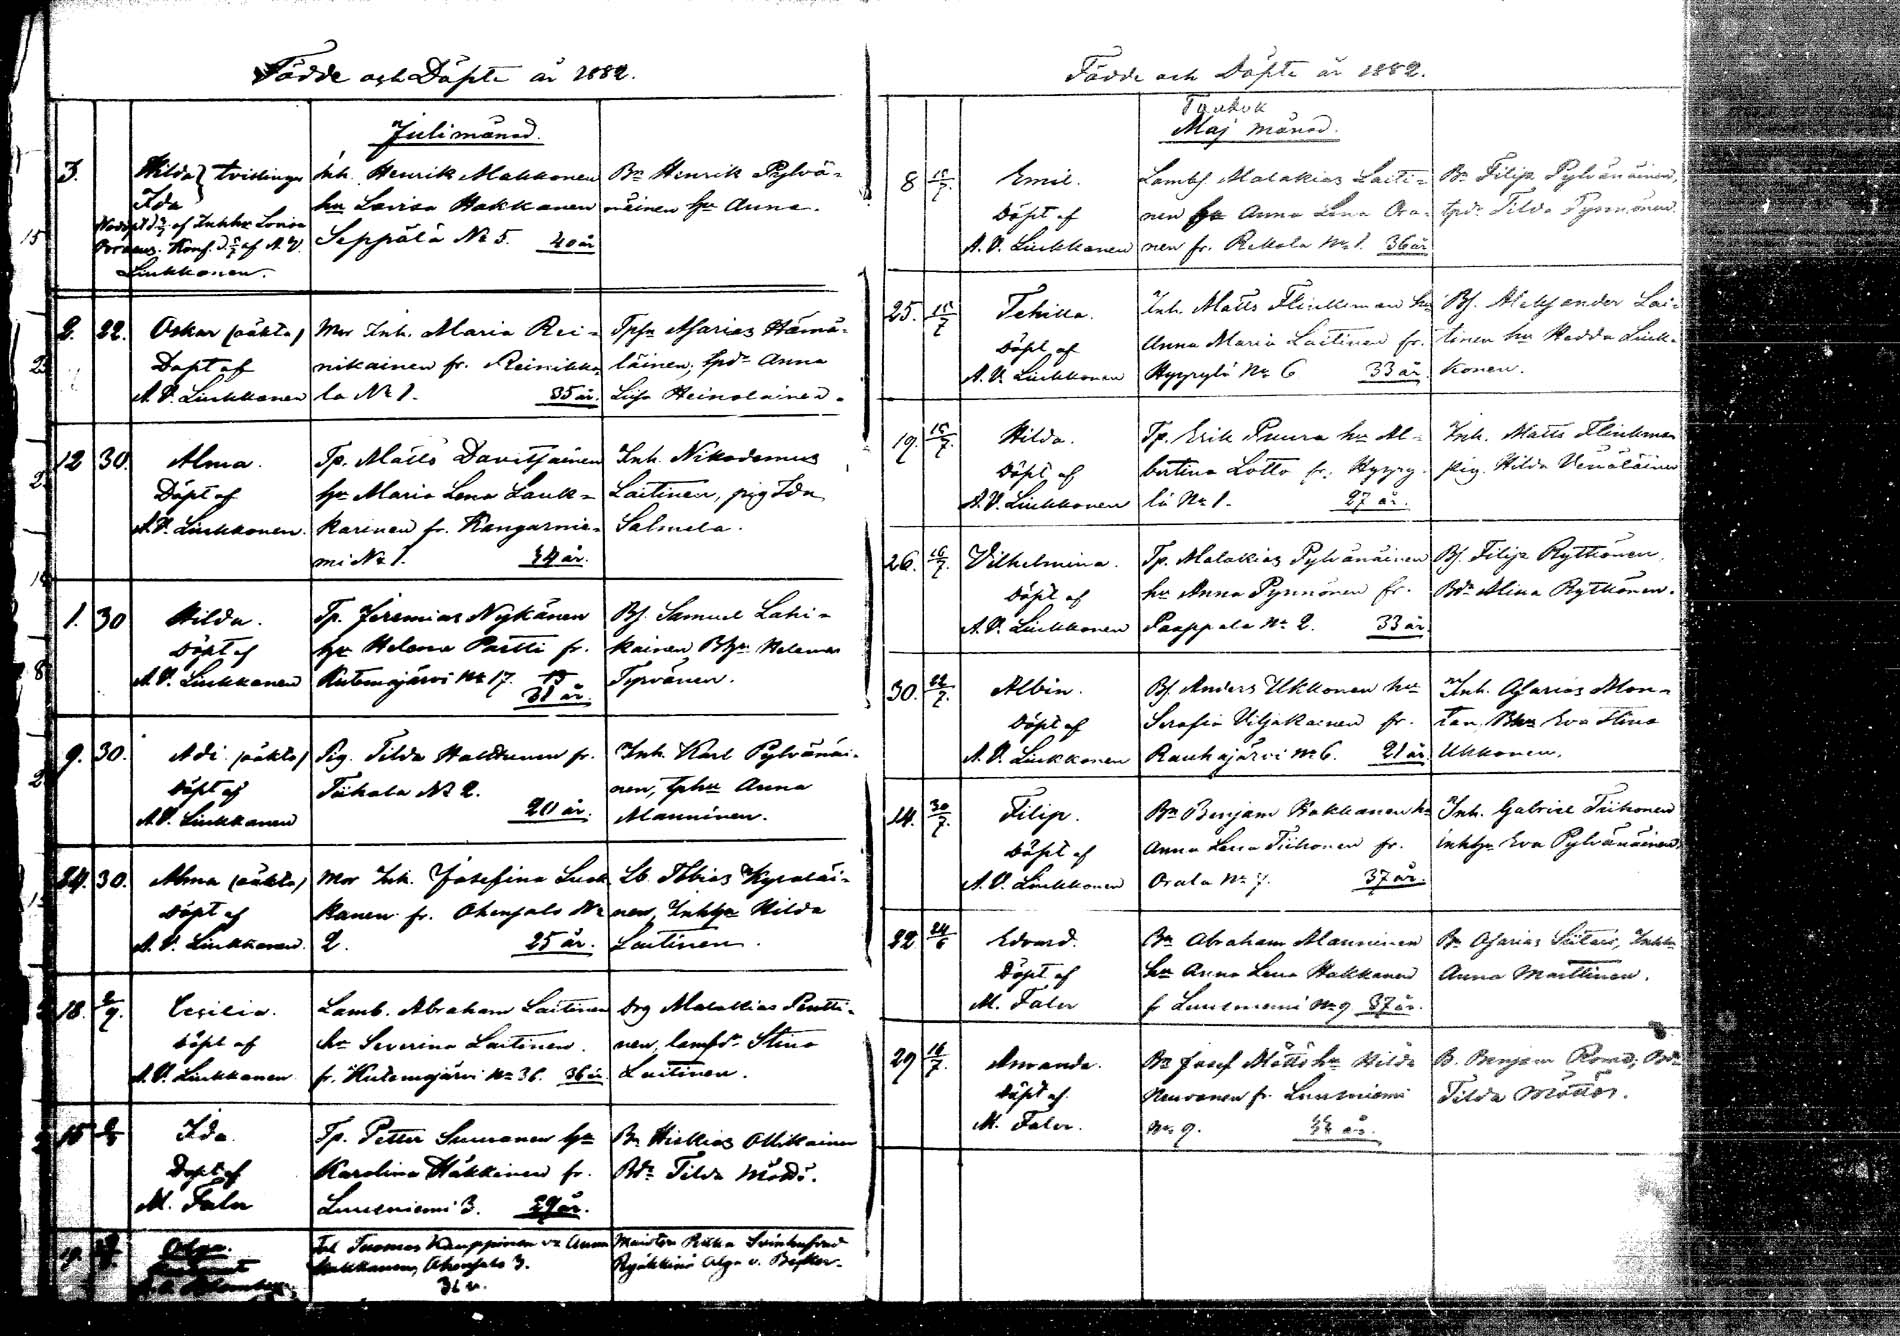 Födde och Döpte år 1882.
Juli månad.
3. Hilda } tvillingar
Ida
Nöddöpt af Inhhu Lovisa
Poranen. Konf. af A. V.
Liukkonen.
Inh. Henrik Makkonen
hu Lovisa Hakkanen
Seppälä No 5. 40 år
Bn Henrik Pylvä-
näinen hu Anna.
2. 22. Oskar (oäkta)
Döpt af
A. V. Liukkonen
Mor Inh. Maria Rei-
nikainen fr. Reinikka
la No 1. 35 år.
Tpsn Asarias Hämä-
läinen, tpdr Anna
Lisa Heinolainen.
12 30. Alma.
Döpt af
A. V. Liukkonen.
Tp. Matts Davitsainen
hu Maria Lena Lauk-
karinen fr. Kangasnie-
mi No 1. 34 år.
Inh. Nikodemus
Laitinen, pig Ida
Salmela.
1. 30 Hilda.
Döpt af
A. V. Liukkonen
Tp. Jeremias Nykänen
hu Helena Partti fr.
Kutemajärvi No 17.
31 år.
Bs. Samuel Lahi-
kainen Bhu Helena
Tyrvänen.
9. 30. Adi (oäkta)
Döpt af
A. V. Liukkonen
Pig. Tilda Haldunen fr.
Tiihola No 2.
20 år.
Inh. Karl Pylvänäi-
nen, tphu Anna
Manninen.
24. 30. Alma (oäkta)
Döpt af
A. V. Liukkonen.
Mor Inh. Josefina Luuk
kanen fr. Ohensalo No
2. 25 år.
Lb. Tobias Kyröläi-
nen, Inhhu Hilda
Laitinen.
18. Cecilia.
Döpt af
A. V. Liukkonen
Lamb. Abraham Laitinen
hu Severina Laitinen.
fr. Kutemajärvi No 36. 36 år
Drg Malakias Pentti-
nen, lambdr Stina
Laitinen.
15 Ida.
Döpt af
M. Faler
Tp. Petter Suuronen hu
Karolina Häkkinen fr.
Luusniemi 3. 29 år.
Bn Hiskias Ollikainen
Bdr Tilda Möttö.
19. Olga.
Inh Tuomas Kauppinen vo Anna
Hakkanen, Ohensalo 3.
31 v.
Maisteri Pekka Svinhufvud
Ryökkinä Olga v. Becker.
Födde och Döpte år 1882.
Toukok
Maj månad.
8 15/7. Emil.
Döpt af
A. V. Liukkonen
Lambs. Malakias Laiti-
nen hu Anna Lena Ora-
nen fr. Rekola No 1. 36 år
Bn Filip Pylvänäinen,
tpdr Tilda Pynnönen.
25. 15/7 Tehilla.
Döpt af
A. V. Liukkonen
Inh. Matts Flinkman hu
Anna Maria Laitinen fr.
Hyyrylä No 6 33 år.
Bs. Aleksander Lai-
tinen hu Hedda Liuk-
konen.
19. 15/7. Hilda.
Döpt af
A. V. Liukkonen
Tp. Erik Puura hu Al-
bertina Lotto fr. Hyyry-
lä No 1. 27 år.
Inh. Matts Flinkman
pig. Hilda Venäläinen
26. 16/7. Vilhelmina.
Döpt af
A. V. Liukkonen
Tp. Malakias Pylvänäinen
hu Anna Pynnönen fr.
Paappala No 2. 33 år.
Bs. Filip Rytkönen.
Bdr Alina Rytkönen.
30. 22/7. Albin.
Döpt af
A. V. Liukkonen
Bs. Anders Ukkonen hu
Serafia Viljakainen fr.
Rauhajärvi No 6. 21 år.
Inh. Asarias Mon-
ton Bhu Eva Stina
Ukkonen.
14. 30/7. Filip.
Döpt af
A. V. Liukkonen
Bn Benjam Hokkanen hu
Anna Lena Tiihonen fr.
Orala No 7. 37 år.
Inh. Gabriel Tiihonen
inhhu Eva Pylvänäinen.
22 24/6 Edvard.
Döpt af
M. Faler
Bn Abraham Manninen
hu Anna Lena Hakkanen
f Luusniemi No 9 37 år.
Bn Asarias Siitari, Inhhu
Anna Marttinen.
29 16/7. Amanda.
Döpt af
M. Faler.
Bn Josef Möttö hu Hilda
Neuvonen fr. Luusniemi
No 9. år.
B. Benjam Romo, Bdr
Tilda Möttös.